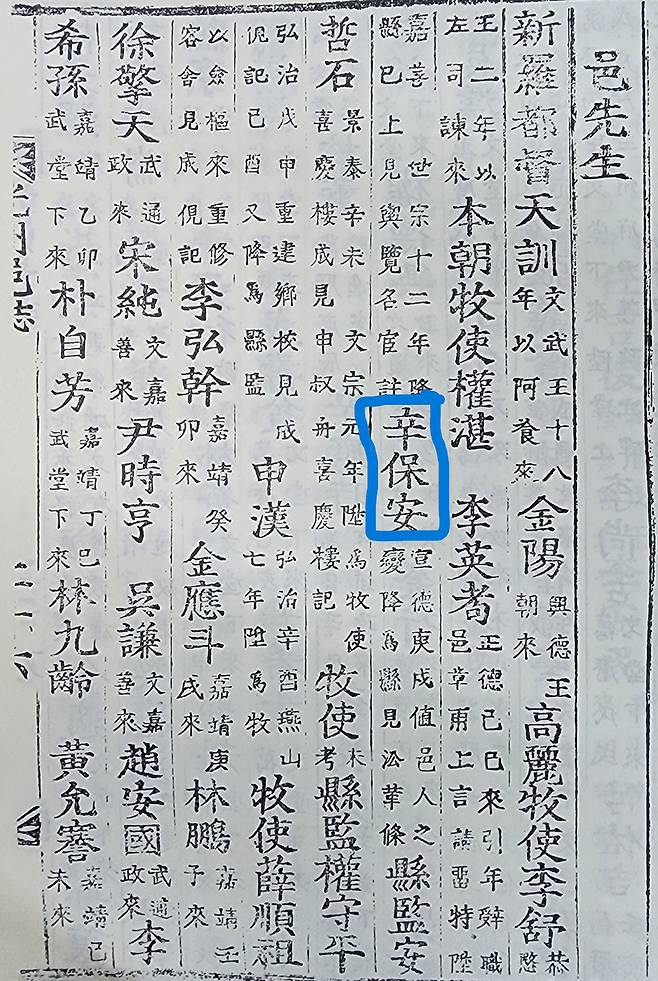 邑先生
新羅都督天訓文武王十八年以阿飡來金陽興德王朝來高麗牧使李舒恭愍
王二年以左司諫來本朝牧使權湛李英耉正德己巳來引年辭職邑章甫上言請留特陞
嘉善下來世宗十二年降縣已上見輿覽名官註辛保安宣德庚戌値邑人之變降爲縣見沿革條縣監安
哲石景泰辛未文宗元年陞爲牧使喜慶樓成見申叔舟喜慶樓記牧使未考縣監權守平
弘治戊申重建鄕校見成俔記己酉又降爲縣監申漢弘治辛酉燕山七年陞爲牧牧使薛順祖
以僉樞來重修容舍見成俔記李弘幹嘉靖癸卯來金應斗嘉靖庚戌來林鵬嘉靖壬子來
徐擎天武通政來宋純文嘉善來尹時亨吳謙文嘉善來趙安國武通政來李
希孫嘉靖乙卯武堂下來朴自芳嘉靖丁巳武堂下來林九齡黃允謇嘉靖己未來
邑志